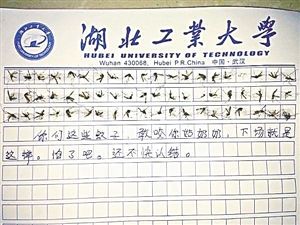 湖北工業大學
HUBEI UNIVERSITY OF TECHNOLOGY
Wuhan 430068, Hubei P.R.China 中国·武汉
你们这些蚊子，敢咬你奶奶，下场就是
这样。怕了吧。还不快认结。